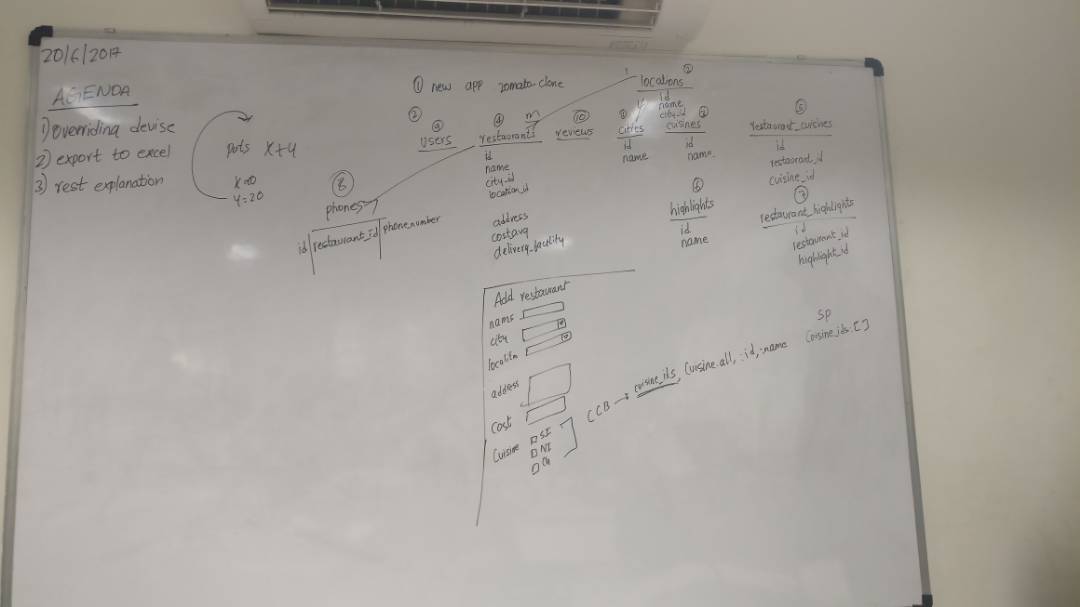 20/6/2017
AGENDA
1) Overriding devise
2) export to excel
3) rest explanation
puts x+y
x=0
y=20
① new app zomato-clone
②
⑨
users
④ m
restaurants
id
name
city_id
location_id
address
costavg
delivery_facility
⑩
reviews
②
locations
id
name
city_id
①
cities
id
name
cuisines
id
name
⑤
restaurant_cuisines
id
restaurant_id
cuisine_id
⑥
highlights
id
name
⑦
restaurant_highlights
id
restaurant_id
highlight_id
⑧
phones
id | restaurant_id | phonenumber
Add restaurant
name
city
address
cost
Cuisine
SI
NI
CCB → cuisine_ids, Cuisine.all, :id, :name
SP
cuisine_ids:[]